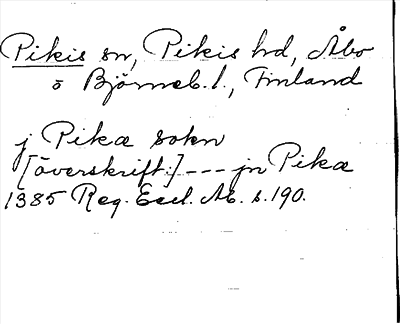 Pikis sn, Pikis hd, Åbo
o Björneb. l., Finland
j Pika sokn
[överskrift:] --- jn Pika
1385 Reg. Eccl. Ab. s. 190.